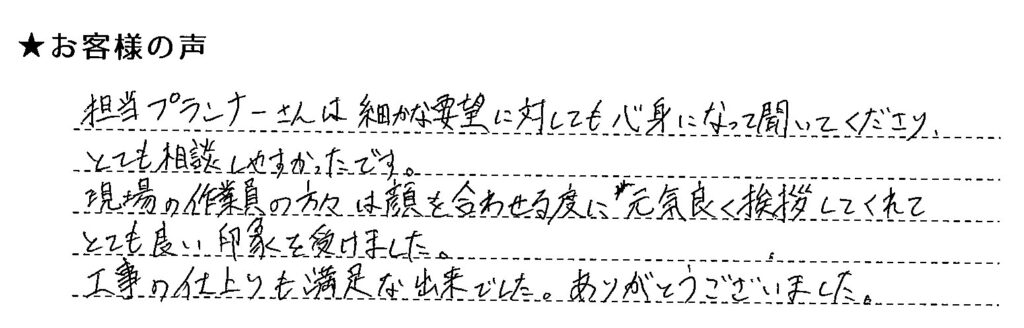 ★お客様の声
担当プランナーさんは細かな要望に対しても心身になって聞いてくださり、
とても相談しやすかったです。
現場の作業員の方々は顔を合わせる度に元気良く挨拶してくれて
とても良い印象を受けました。
工事の仕上りも満足な出来でした。ありがとうございました。